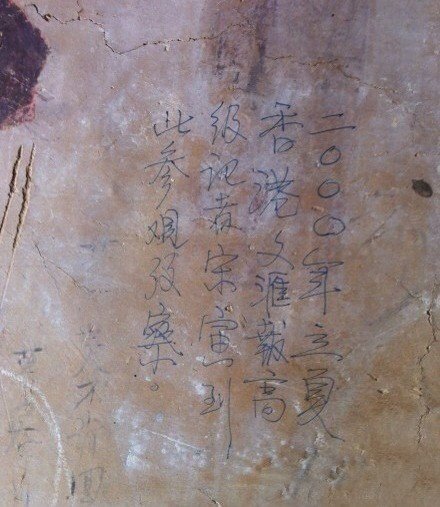 二〇〇〇年立夏
香港文滙報高
级记者宋富到
此参观攷察。